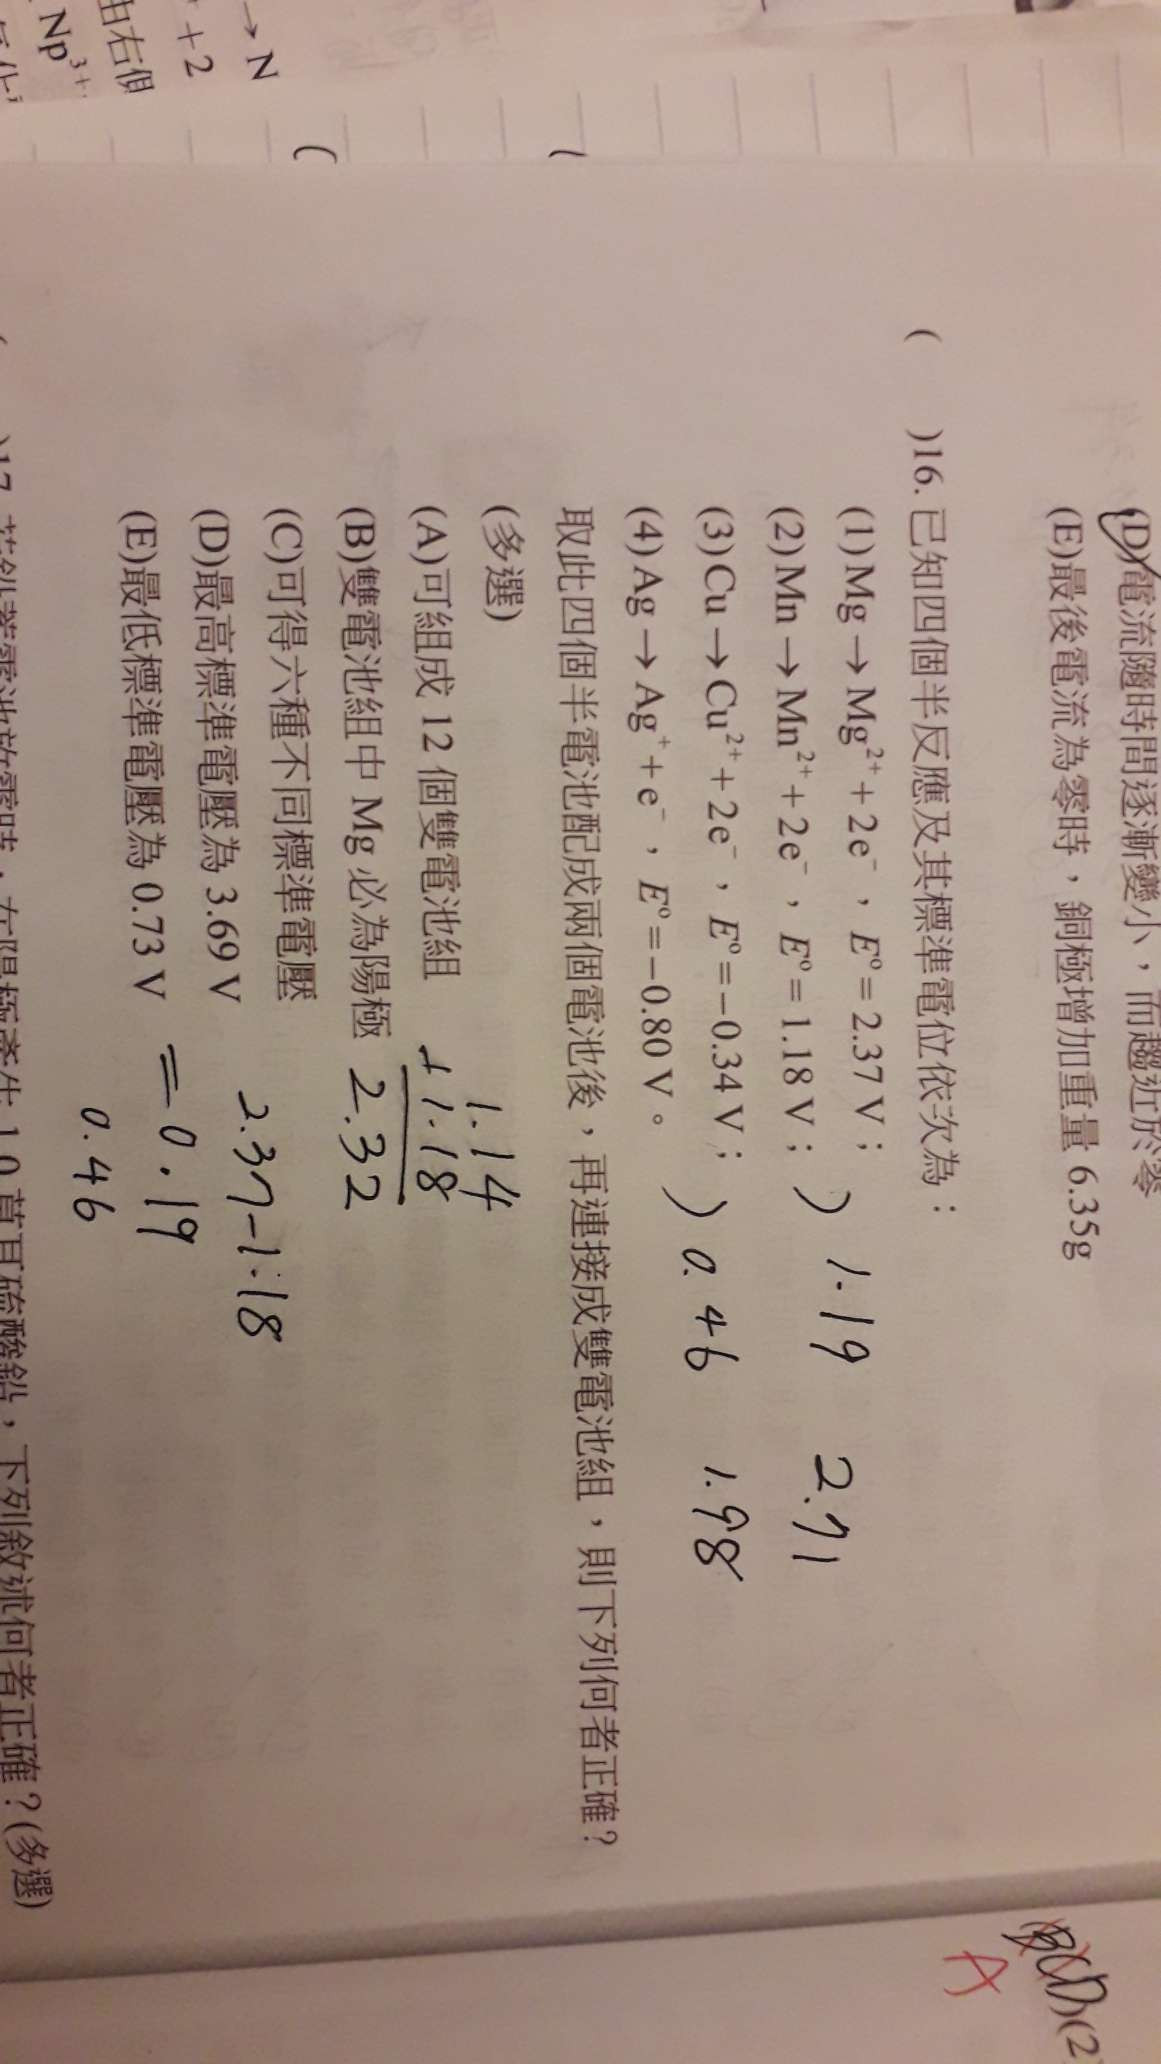 →N
+2
由右側
Np³⁺
(D)電流隨時間逐漸變小，而趨近於零
(E)最後電流為零時，銅極增加重量 6.35g
(　)16. 已知四個半反應及其標準電位依次為：
(1) Mg → Mg²⁺ + 2e⁻，E°= 2.37 V；
(2) Mn → Mn²⁺ + 2e⁻，E°= 1.18 V；
) 1.19　2.71
(3) Cu → Cu²⁺ + 2e⁻，E°= −0.34 V；
(4) Ag → Ag⁺ + e⁻，E°= −0.80 V。
) 0.46　1.98
取此四個半電池配成兩個電池後，再連接成雙電池組，則下列何者正確？
(多選)
(A)可組成 12 個雙電池組
1.14
+ 1.18
2.32
(B)雙電池組中 Mg 必為陽極
(C)可得六種不同標準電壓
2.37-1.18
(D)最高標準電壓為 3.69 V
(E)最低標準電壓為 0.73 V
= 0.19
0.46
BCD)(2
A
)17. 若鉛蓄電池放電時，在陽極產生 1.0 莫耳硫酸鉛，下列敘述何者正確？(多選)